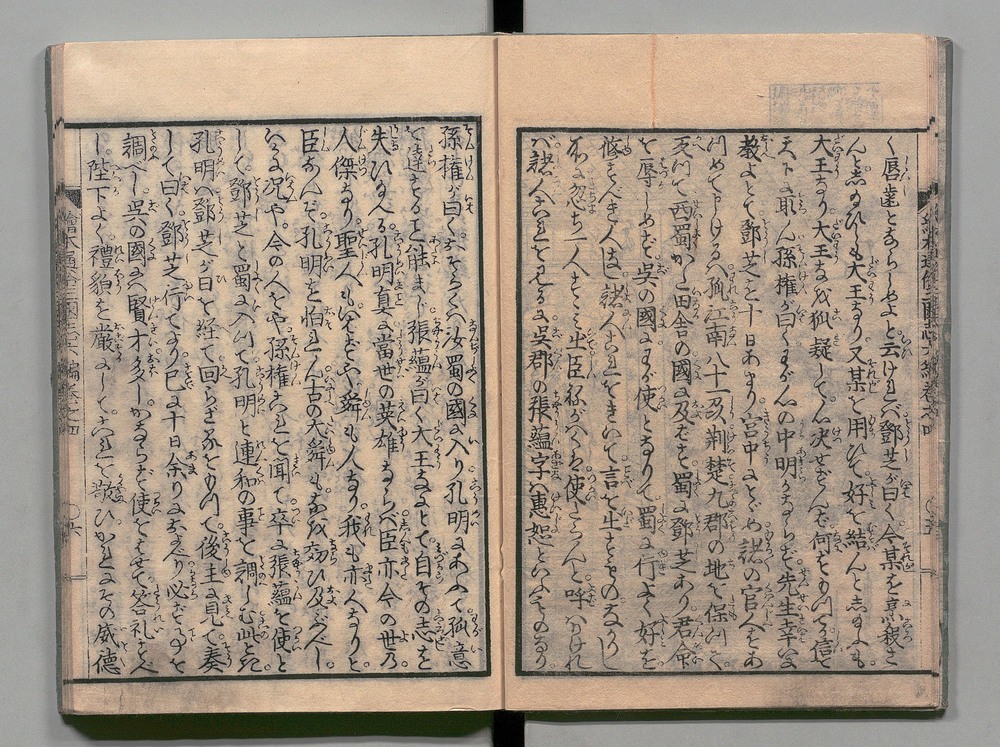 く唇歯とならしめよと云けれバ鄧芝が曰く今某を烹殺さ
んと志給ひしも大王なり又某を用ひて好を結んと志給ふも
大王なり大王なを狐疑して心决せずんバ何をもつて信を
天下に取ん孫權が曰くわが心の中明かならず先生幸ひに
教よとて鄧芝を十日あまり宮中にとゞめ諸の官人をあ
つめて申けるハ孤江南八十一刕荆楚九郡の地を保つて
反つて西蜀かた田舎の國に及ばず蜀に鄧芝あり君命
を辱しめず呉の國にわが使となりて蜀に行よく好を
修すべき人はなし諸人これをきいて言を出すものなかりし
が忽ち一人すゝみ出臣ねがハくは使たらんと呼ハりけれ
バ諸人これを見るに呉郡の張蘊字ハ惠恕といふものなり
孫權が曰くおそらくハ汝蜀の國に入り孔明にあふて孤意
を達すること能まじ張蘊が曰く大王なにとて自その志を
失ひ給へる孔明眞に當世の英雄ならバ臣亦今の世乃
人傑なり聖人もいはずや舜も人なり我も亦人なりと
臣なんぞ孔明を怕れん古の大舜もなを効ひ及ぶべし
いかに况や今の人をや孫權これを聞て卒に張蘊を使と
して鄧芝と蜀に入つて孔明と連和の事を調しむ此とき
孔明ハ鄧芝が日を経て回らざるをもつて後主に見て奏
して曰く鄧芝行てより已に十日余りにおよべり必ず事を
調べし呉の國にハ賢才多しかならず使をはせて答礼すべ
し陛下よく禮貌を嚴にしてこれを敬ひかれにその威德